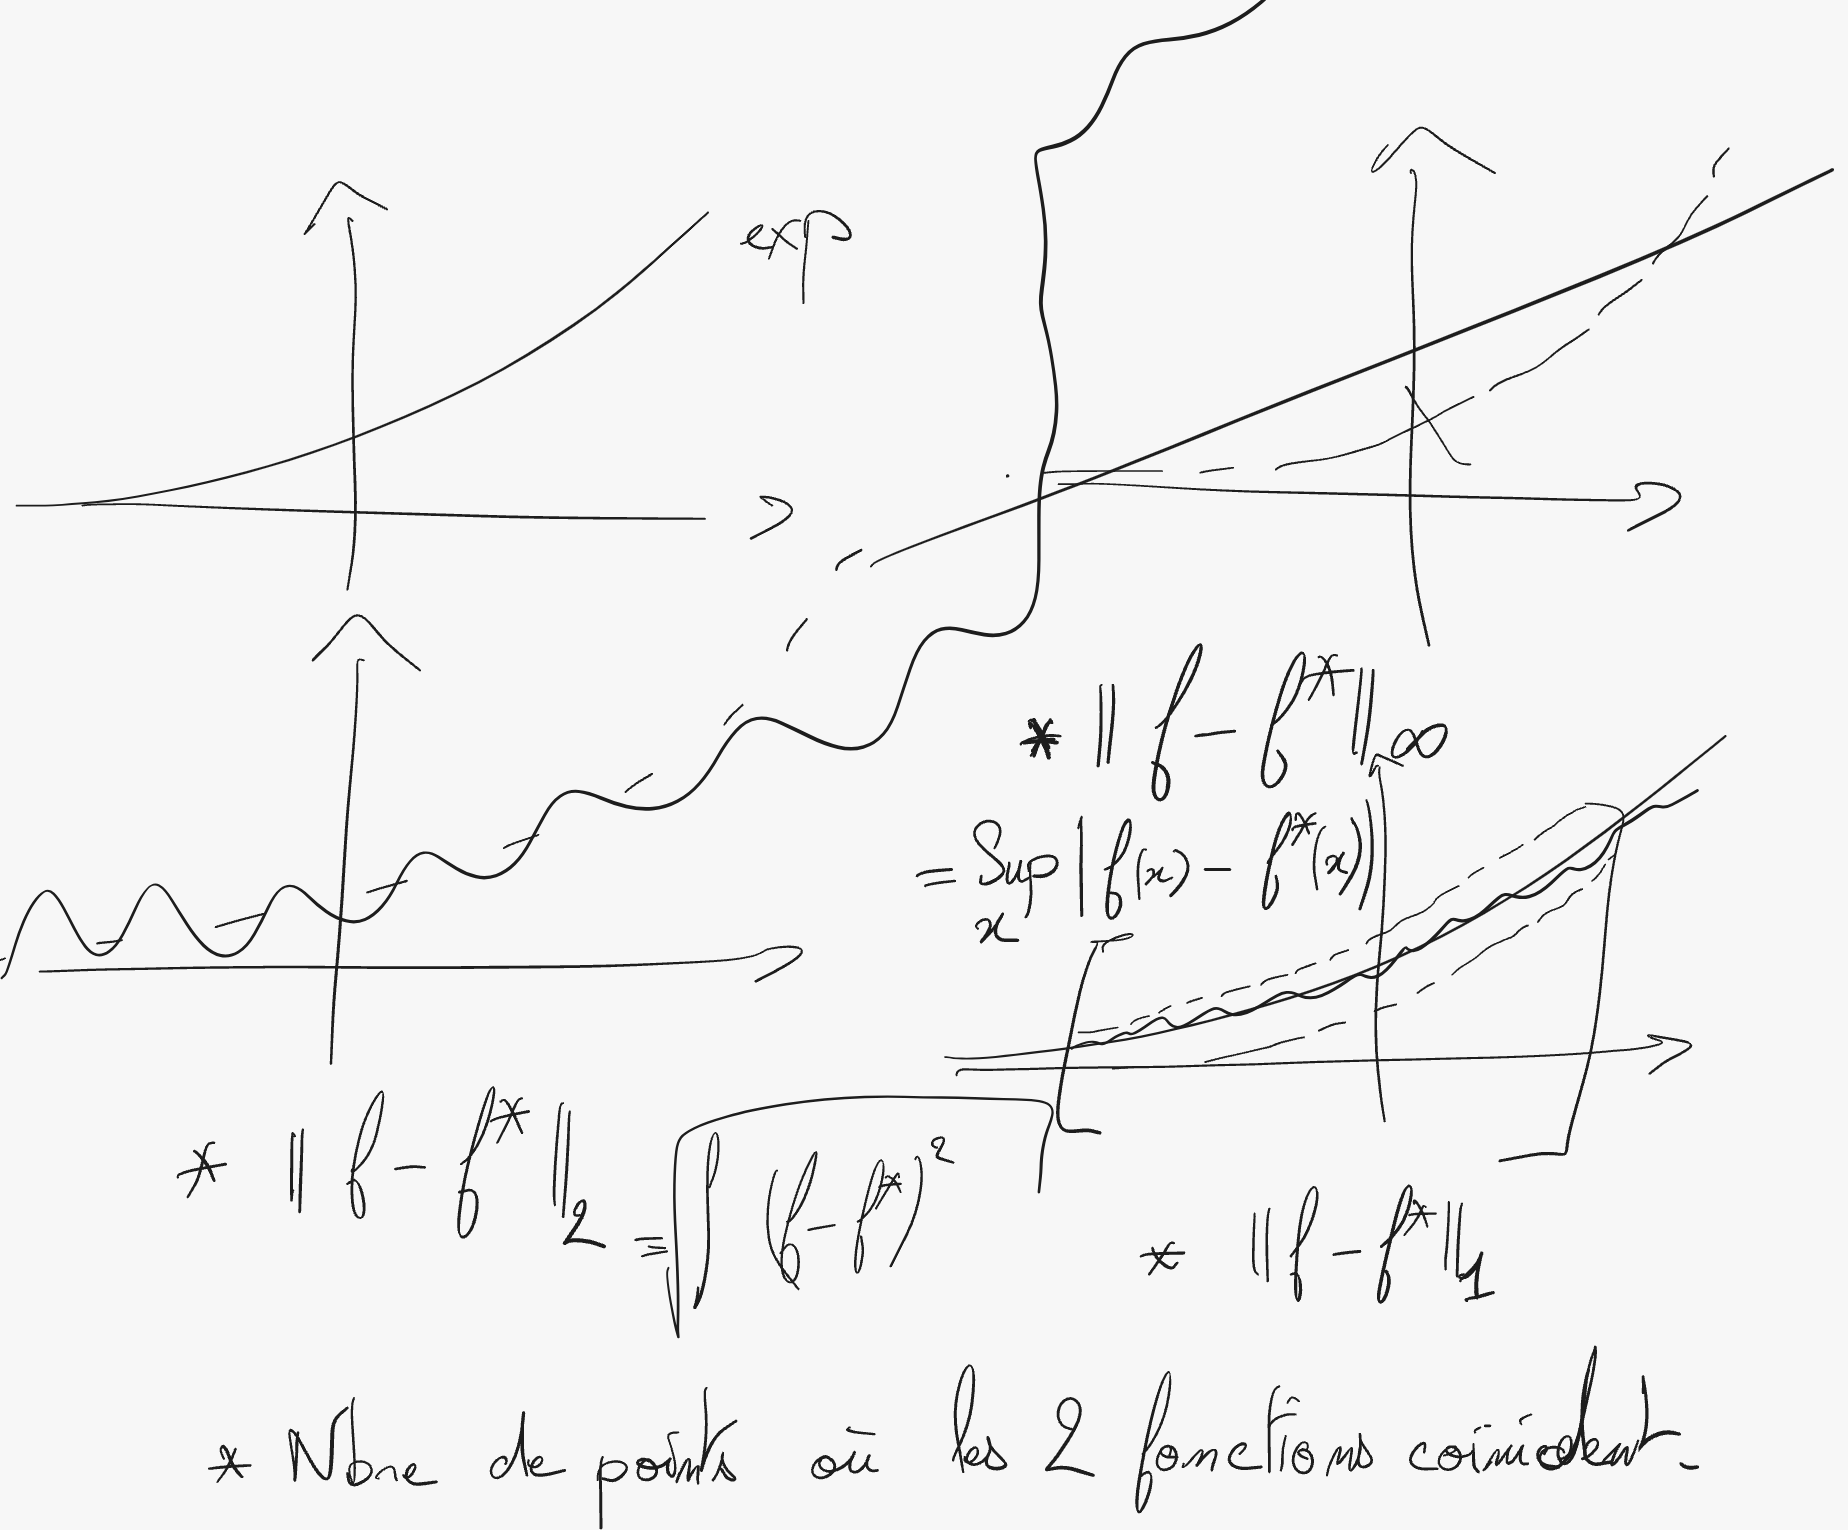 exp
* || f - f* ||∞
= Sup | f(x) - f*(x) |
x
* || f - f* ||2 = √∫ (f - f*)²
* || f - f* ||1
* Nbre de points où les 2 fonctions coïncident.